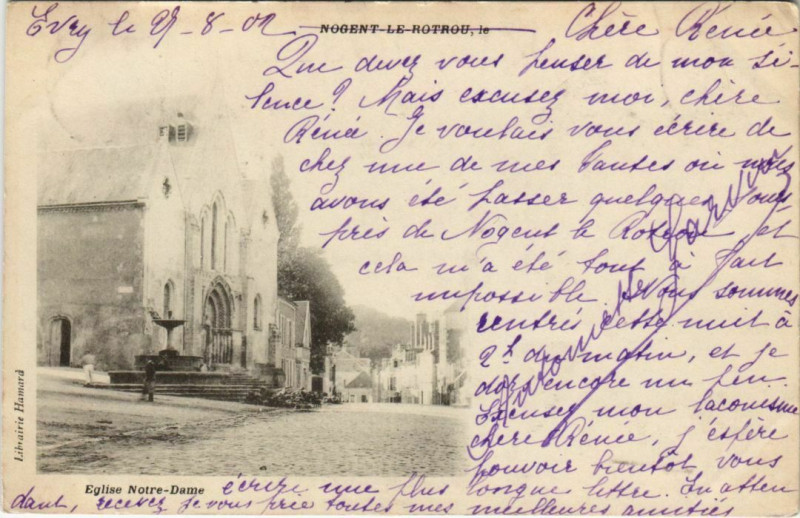 Evry le 27-8-02
NOGENT-LE-ROTROU, le
Chère Renée
Que devez vous penser de mon si-
lence? Mais excusez moi, chère
Rénée. Je voulais vous écrire de
chez une de mes tantes où nous
avons été passer quelques jours
près de Nogent le Rotrou et
cela m'a été tout à fait
impossible. Nous sommes
rentrés cette nuit à
2h du matin, et je
dors encore un peu.
Excusez mon laconisme
chère Rénée, j'éspère
pouvoir bientôt vous
écrire une plus longue lettre. En atten
dant, recevez je vous prie toutes mes meilleures amitiés
Librairie Hamard
Eglise Notre-Dame